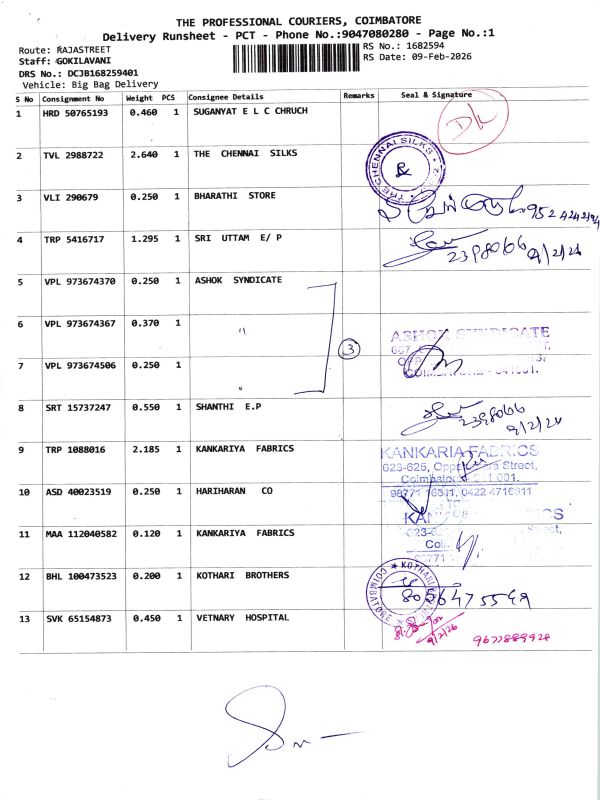 THE PROFESSIONAL COURIERS, COIMBATORE
Delivery Runsheet - PCT - Phone No.:9047080280 - Page No.:1
Route: RAJASTREET
RS No.: 1682594
Staff: GOKILAVANI
RS Date: 09-Feb-2026
DRS No.: DCJB168259401
Vehicle: Big Bag Delivery
S No Consignment No Weight PCS Consignee Details Remarks Seal & Signature
1 HRD 50765193 0.460 1 SUGANYAT E L C CHRUCH
2 TVL 2988722 2.640 1 THE CHENNAI SILKS
THE CHENNAI SILKS
3 VLI 290679 0.250 1 BHARATHI STORE
4 TRP 5416717 1.295 1 SRI UTTAM E/ P
2398066 9/2/26
5 VPL 973674370 0.250 1 ASHOK SYNDICATE
6 VPL 973674367 0.370 1 "
ASHOK SYNDICATE
7 VPL 973674506 0.250 1
3
COIMBATORE - 641001.
8 SRT 15737247 0.550 1 SHANTHI E.P
2398066
9/2/26
9 TRP 1088016 2.185 1 KANKARIYA FABRICS
KANKARIA FABRICS
623-625, Street,
10 ASD 40023519 0.250 1 HARIHARAN CO
0422 4716811
11 MAA 112040582 0.120 1 KANKARIYA FABRICS
12 BHL 100473523 0.200 1 KOTHARI BROTHERS
KOTHARI
COIMBATORE
8056475549
13 SVK 65154873 0.450 1 VETNARY HOSPITAL
9/2/26